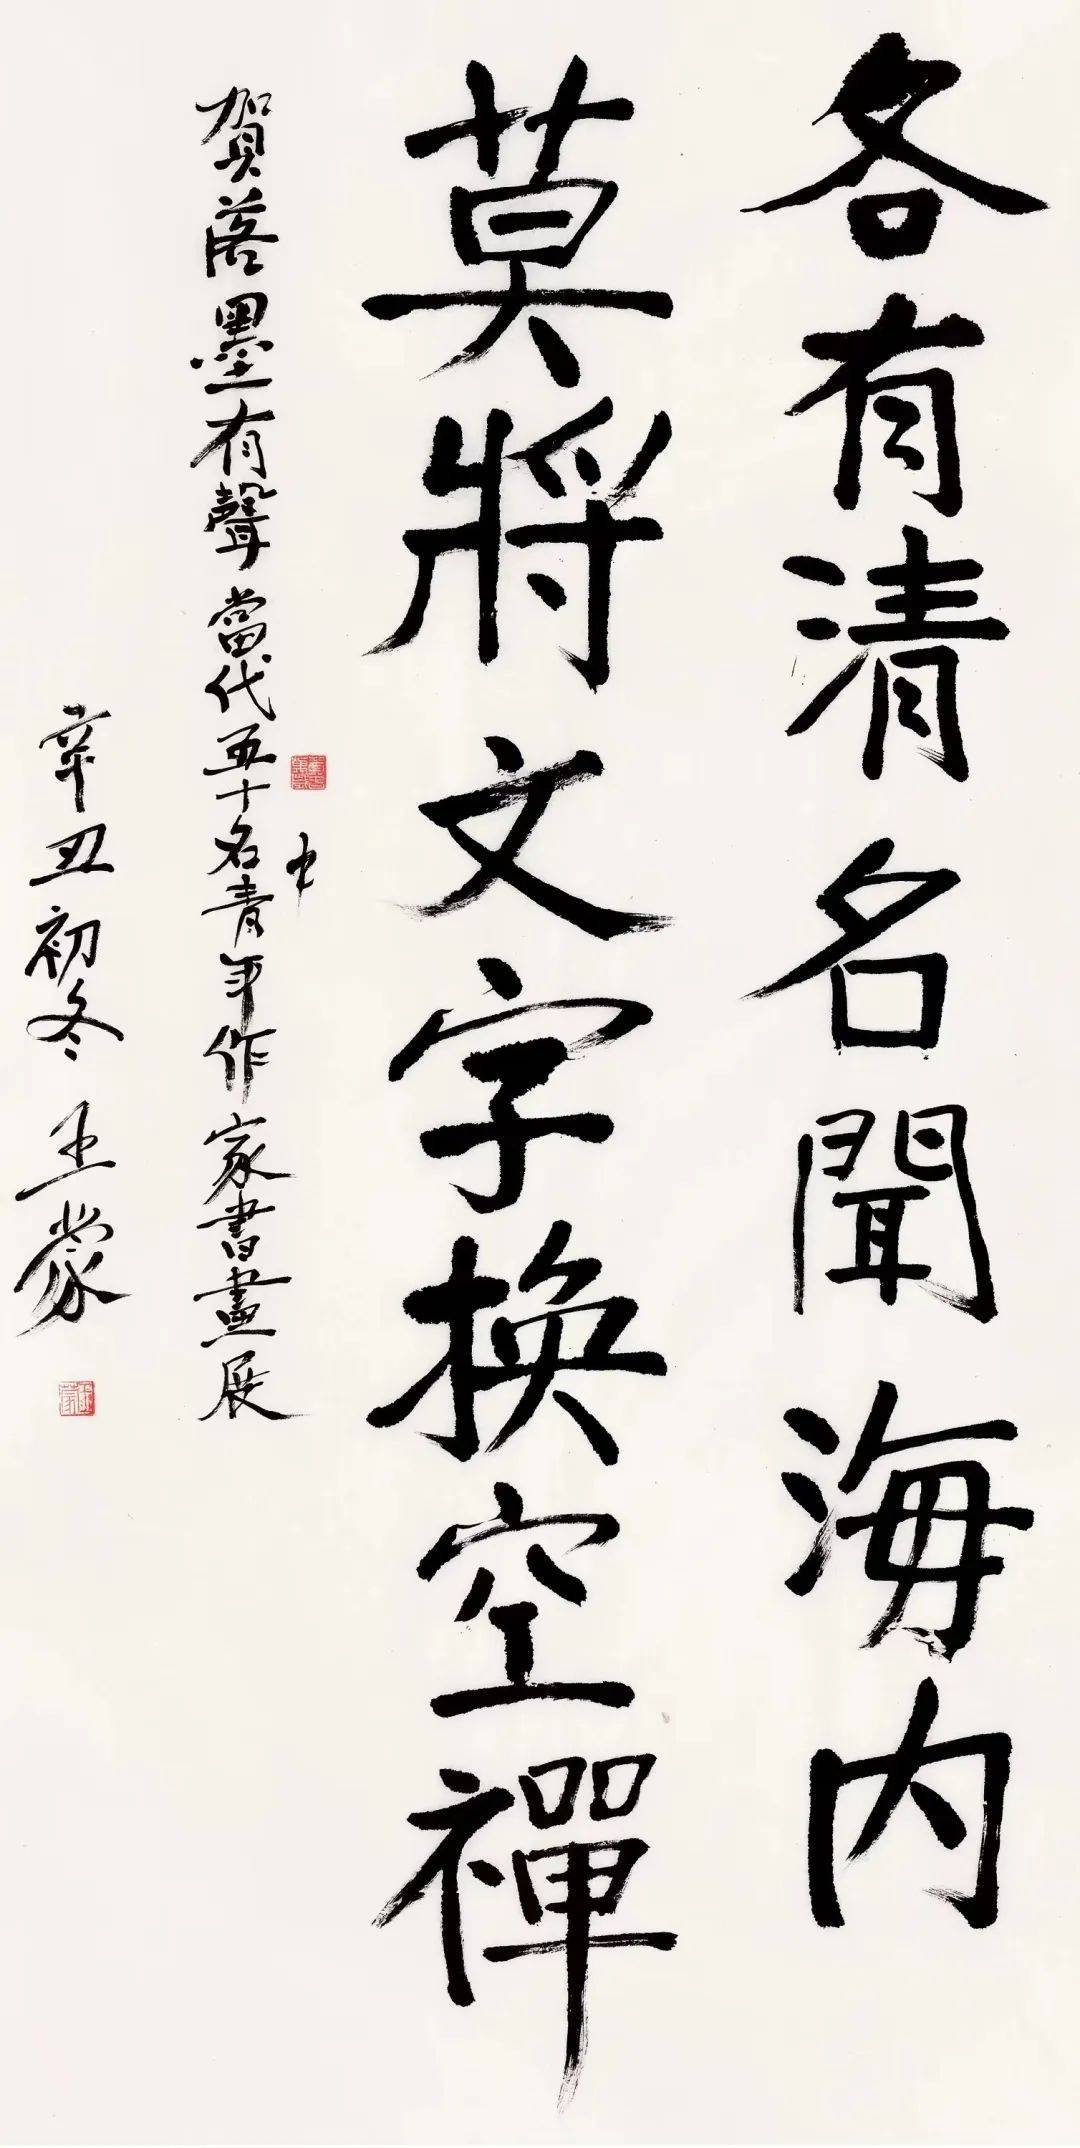 各有清名聞海内
莫將文字換空禪
中
賀落墨有聲當代五十名青年作家書畫展
辛丑初冬 王蒙
王蒙